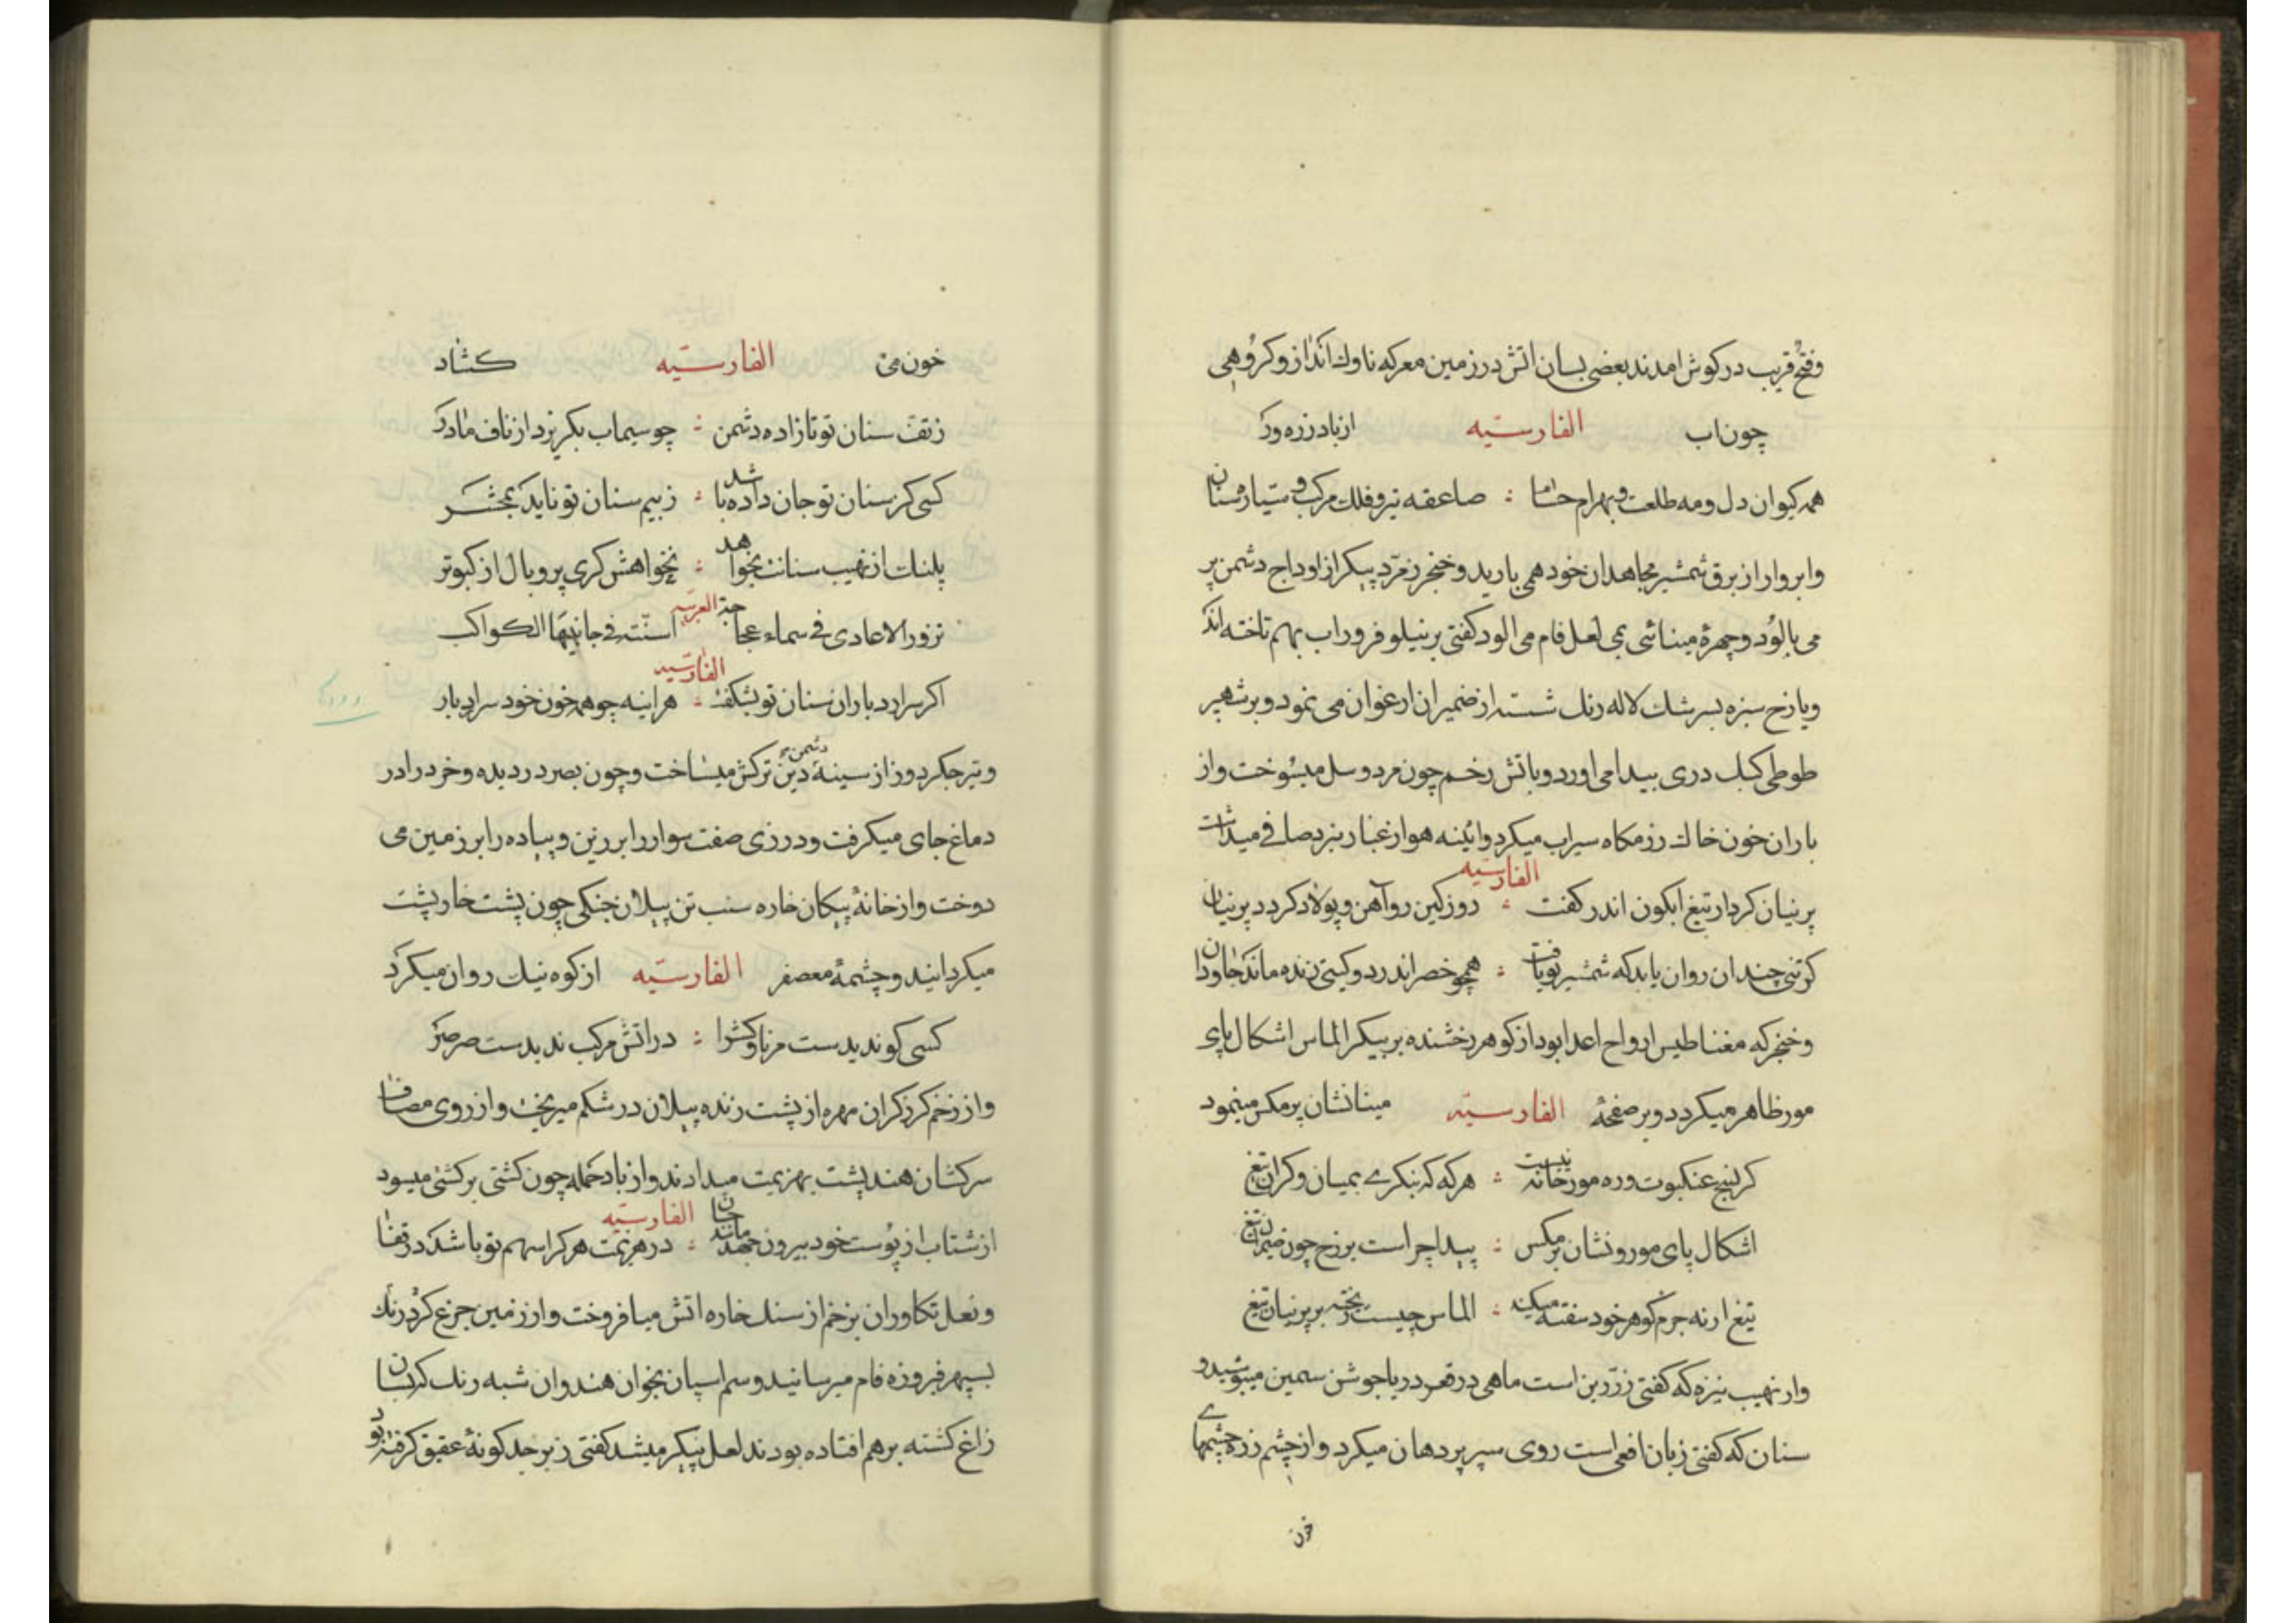 وفتح قریب در کوش امدند بعضی بسان اتش در زمین معرکه ناوك انداز و کروهی
چون اب الفارسیّه از باد زره ور
همه کیوان دل و مه طلعت و بهرام حسام : صاعقه تیر و فلك مرکب و سیاره سنان
وابروار از برق شمشیر مجاهدان خود همی بارید و خنجر زمرّد پیکر از اوداج دشمن پر
می بالود و چهرهٔ مینائی بمی لعل فام می الود کفتی بر نیلوفر وراب بهم تاخته اند
ویا رخ سبزه بسرشك لاله رنك شسته از ضمیران ارغوان می نمود و بر شهپر
طوطی کبك دری پیدا می اورد و باتش زخم چون مرد و سل میسوخت واز
باران خون خاك رزمکاه سیراب میکرد وائینه هوا از غبار نبرد صافی میداشت
الفارسیّه
پرنیان کردار تیغ ابکون اندر کفت : روز کین روآهن و پولاد کردد پرنیان
کر تنی چندان روان یابد که شمشیر تو یافت : همچو خضر اندر دو کیتی زنده ماند جاودان
وخنجر که مغناطیس ارواح اعدا بود از کوهر رخشنده بر پیکر الماس اشکال پای
مور ظاهر میکردد و بر صفحهٔ الفارسیّه مینا نشان پر مکس مینمود
کر نسج عنکبوت وره مورخانه نیست : هرکه که بنکرے بمیان وکران تیغ
اشکال پای مور ونشان پر مکس : پیدا چراست بر رخ چون ضیمران تیغ
تیغ ار نه جرم کوهر خود سفته میکند : الماس چیست ریخته بر پرنیان تیغ
واز نهیب نیزه که کفتی زرّین است ماهی در قعر دریا جوشن سمین میپوشید و
سنان که کفتی زبان افعی است روی سپر پر دهان میکرد واز چشم زره چشمهاے
خون
خون می الفارسیّه کشاد
زتفّ سنان تو تا زاده دشمن : چو سیماب بکریزد از ناف مادر
کسی کز سنان تو جان داده باشد : ز بیم سنان تو ناید بمحشر
پلنك از نهیب سنانت بخواهد : بخواهش کری پر و بال از کبوتر
العربیّه
تزور الاعادی فی سماء عجاجة اسنّته فی جانبیها الکواکب
الفارسیّه
اکر سر ارد باران سنان تو بشکفت : هراینه چو همه خون خود سر ارد بار
وتیر جکردوز از سینهٔ دشمن دین ترکش میساخت وچون بصر در دیده وخرد را در
دماغ جای میکرفت و درزی صفت سوار را بر زین و پیاده را بر زمین می
دوخت واز خانهٔ پیکان خاره سنب تن پیلان جنکی چون پشت خارپشت
میکردانید و چشمهٔ معصفر الفارسیّه از کوه نیل روان میکرد
کسی کو ندیدست مر ناوکش را : در اتش مرکب ندیدست صرصر
واز زخم کرز کران مهره از پشت زنده پیلان در شکم میریخت واز روی مصاف
سرکشان هند پشت بهزیمت میدادند واز باد حمله چون کشتی بر کشتی میسود
الفارسیّه
از شتاب از پوست خود بیرون جهد مانند جان : در هزیمت هرکرا سهم تو باشد در قفا
ونعل تکاوران بزخم از سنك خاره اتش میافروخت واز زمین جزع کرد رنك
بسپهر فیروزه فام میرسانید وسم اسپان بخوان هندوان شبه رنك کر بسان
زاغ کشته بر هم افتاده بودند لعل پیکر میشد کفتی زبرجد کونهٔ عقیق کرفته بود